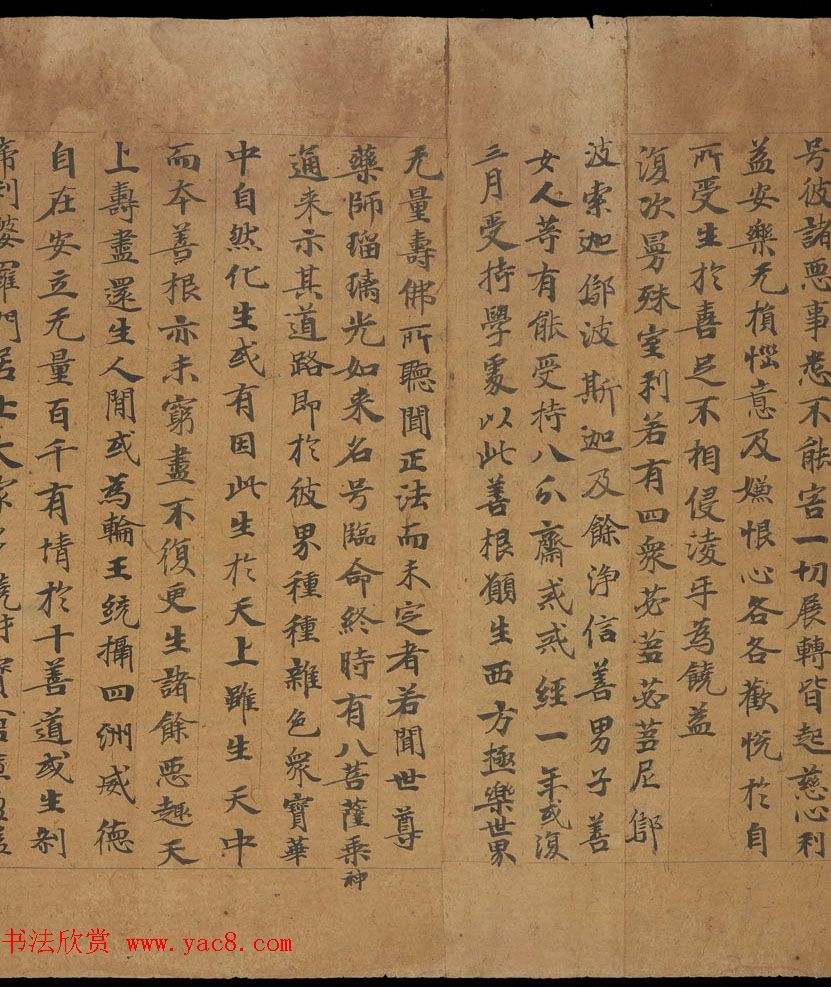 号彼諸惡事悉不能害一切展轉皆起慈心利
益安樂无損惱意及嫌恨心各各歡悅於自
所受生於喜足不相侵淩互為饒益
復次曼殊室利若有四衆苾蒭苾蒭尼鄔
波索迦鄔波斯迦及餘淨信善男子善
女人等有能受持八分齋戒戒經一年或復
三月受持學處以此善根願生西方極樂世界
无量壽佛所聽聞正法而未定者若聞世尊
藥師瑠璃光如来名号臨命終時有八菩薩乘神
通来示其道路即於彼界種種雜色衆寶華
中自然化生或有因此生於天上雖生天中
而本善根亦未窮盡不復更生諸餘惡趣天
上壽盡還生人間或為輪王統攝四洲威德
自在安立无量百千有情於十善道或生剎
帝利婆羅門居士大家多饒財寶倉庫盈溢
书法欣赏 www.yac8.com